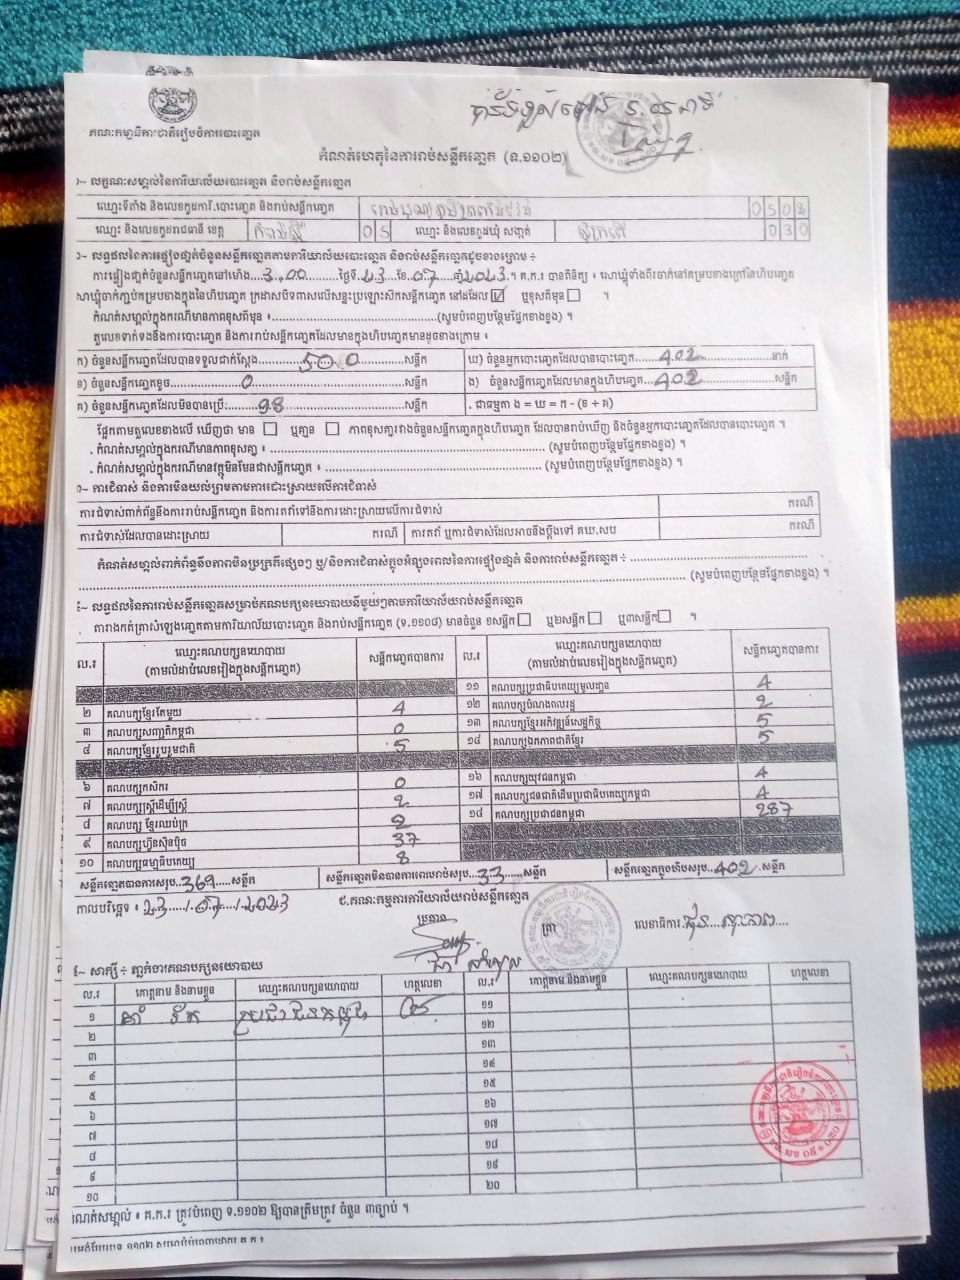 គណៈកម្មាធិការជាតិរៀបចំការបោះឆ្នោត
កំណត់ហេតុនៃការរាប់សន្លឹកឆ្នោត (ទ.១១០២)
១~ លក្ខណៈសម្គាល់នៃការិយាល័យបោះឆ្នោត និងរាប់សន្លឹកឆ្នោត
ឈ្មោះទីតាំង និងលេខកូដការិ.បោះឆ្នោត និងរាប់សន្លឹកឆ្នោត
ឈ្មោះ និងលេខកូដរាជធានី ខេត្ត កំពង់ស្ពឺ 05 ឈ្មោះ និងលេខកូដឃុំ សង្កាត់ 030
២~ លទ្ធផលនៃការផ្ទៀងផ្ទាត់ចំនួនសន្លឹកឆ្នោតតាមការិយាល័យបោះឆ្នោត និងរាប់សន្លឹកឆ្នោតដូចខាងក្រោម ÷
ការផ្ទៀងផ្ទាត់ចំនួនសន្លឹកឆ្នោតនៅម៉ោង 3.00 ថ្ងៃទី 23 ខែ 07 ឆ្នាំ 2023 ។ គ.ក.រ បានពិនិត្យ ៖ សោឃ្មុំទាំងពីរចាក់នៅគម្របខាងក្រៅនៃហិបឆ្នោត
សោឃ្មុំចាក់ភ្ជាប់គម្របខាងក្នុងនៃហិបឆ្នោត ក្រដាសបិទពាសលើសន្ទះប្រឡោះសិកសន្លឹកឆ្នោត នៅដដែល ☑ ឬខុសពីមុន ☐ ។
កំណត់សម្គាល់ក្នុងករណីមានភាពខុសពីមុន ៖ (សូមបំពេញបន្ថែមផ្នែកខាងខ្នង) ។
តួលេខទាក់ទងនឹងការបោះឆ្នោត និងការរាប់សន្លឹកឆ្នោតដែលមានក្នុងហិបឆ្នោតមានដូចខាងក្រោម ៖
ក) ចំនួនសន្លឹកឆ្នោតដែលបានទទួលជាក់ស្តែង 500 សន្លឹក ឃ) ចំនួនអ្នកបោះឆ្នោតដែលបានបោះឆ្នោត 402 នាក់
ខ) ចំនួនសន្លឹកឆ្នោតខូច 0 សន្លឹក ង) ចំនួនសន្លឹកឆ្នោតដែលមានក្នុងហិបឆ្នោត 402 សន្លឹក
គ) ចំនួនសន្លឹកឆ្នោតដែលមិនបានប្រើ 98 សន្លឹក . ជាធម្មតា ង = ឃ = ក - (ខ + គ)
ផ្អែកតាមតួលេខខាងលើ ឃើញថា មាន ☐ ឬគ្មាន ☐ ភាពខុសគ្នារវាងចំនួនសន្លឹកឆ្នោតក្នុងហិបឆ្នោត ដែលបានរាប់ឃើញ និងចំនួនអ្នកបោះឆ្នោតដែលបានបោះឆ្នោត ។
. កំណត់សម្គាល់ក្នុងករណីមានភាពខុសគ្នា ៖ (សូមបំពេញបន្ថែមផ្នែកខាងខ្នង) ។
. កំណត់សម្គាល់ក្នុងករណីមានវត្ថុមិនមែនជាសន្លឹកឆ្នោត ៖ (សូមបំពេញបន្ថែមផ្នែកខាងខ្នង) ។
៣~ ការជំទាស់ និងការមិនយល់ព្រមតាមការដោះស្រាយលើការជំទាស់
ការជំទាស់ពាក់ព័ន្ធនឹងការរាប់សន្លឹកឆ្នោត និងការតវ៉ាទៅនឹងការដោះស្រាយលើការជំទាស់ ករណី
ការជំទាស់ដែលបានដោះស្រាយ ករណី ការតវ៉ា ឬការជំទាស់ដែលអាចនឹងប្តឹងទៅ គឃ.សប ករណី
កំណត់សម្គាល់ពាក់ព័ន្ធនឹងភាពមិនប្រក្រតីផ្សេងៗ ឬ/និងការជំទាស់ក្នុងអំឡុងពេលនៃការផ្ទៀងផ្ទាត់ និងការរាប់សន្លឹកឆ្នោត ÷
(សូមបំពេញបន្ថែមផ្នែកខាងខ្នង) ។
៤~ លទ្ធផលនៃការរាប់សន្លឹកឆ្នោតសម្រាប់គណបក្សនយោបាយនីមួយៗតាមការិយាល័យរាប់សន្លឹកឆ្នោត
តារាងកត់ត្រាសំឡេងឆ្នោតតាមការិយាល័យបោះឆ្នោត និងរាប់សន្លឹកឆ្នោត (ទ.១១០៨) មានចំនួន ១សន្លឹក ☐ ឬ២សន្លឹក ☐ ឬ៣សន្លឹក ☐ ។
ល.រ ឈ្មោះគណបក្សនយោបាយ (តាមលំដាប់លេខរៀងក្នុងសន្លឹកឆ្នោត) សន្លឹកឆ្នោតបានការ ល.រ ឈ្មោះគណបក្សនយោបាយ (តាមលំដាប់លេខរៀងក្នុងសន្លឹកឆ្នោត) សន្លឹកឆ្នោតបានការ
១១ គណបក្សប្រជាធិបតេយ្យមូលដ្ឋាន 4
២ គណបក្សខ្មែរតែមួយ 4 ១២ គណបក្សបំណងពលរដ្ឋ 2
៣ គណបក្សសញ្ជាតិកម្ពុជា 0 ១៣ គណបក្សខ្មែរអភិវឌ្ឍន៍សេដ្ឋកិច្ច 5
៤ គណបក្សខ្មែររួបរួមជាតិ 5 ១៤ គណបក្សឯកភាពជាតិខ្មែរ 5
៦ គណបក្សកសិករ 0 ១៦ គណបក្សយុវជនកម្ពុជា 4
៧ គណបក្សស្ត្រីដើម្បីស្ត្រី 2 ១៧ គណបក្សជនជាតិដើមប្រជាធិបតេយ្យកម្ពុជា 4
៨ គណបក្ស ខ្មែរឈប់ក្រ 2 ១៨ គណបក្សប្រជាជនកម្ពុជា 287
៩ គណបក្សហ៊្វុនស៊ិនប៉ិច 37
១០ គណបក្សធម្មាធិបតេយ្យ 8
សន្លឹកឆ្នោតបានការសរុប 369 សន្លឹក សន្លឹកឆ្នោតមិនបានការពេលរាប់សរុប 33 សន្លឹក សន្លឹកឆ្នោតក្នុងហិបសរុប 402 សន្លឹក
កាលបរិច្ឆេទ ៖ 23/07/2023 ជ.គណៈកម្មការការិយាល័យរាប់សន្លឹកឆ្នោត
ប្រធាន ត្រា លេខាធិការ
៥~ សាក្សី ÷ ភ្នាក់ងារគណបក្សនយោបាយ
ល.រ គោត្តនាម និងនាមខ្លួន ឈ្មោះគណបក្សនយោបាយ ហត្ថលេខា ល.រ គោត្តនាម និងនាមខ្លួន ឈ្មោះគណបក្សនយោបាយ ហត្ថលេខា
១ ប្រជាជនកម្ពុជា ១១
២ ១២
៣ ១៣
៤ ១៤
៥ ១៥
៦ ១៦
៧ ១៧
៨ ១៨
៩ ១៩
១០ ២០
ណត់សម្គាល់ ៖ គ.ក.រ ត្រូវបំពេញ ទ.១១០២ ឱ្យបានត្រឹមត្រូវ ចំនួន ៣ច្បាប់ ។